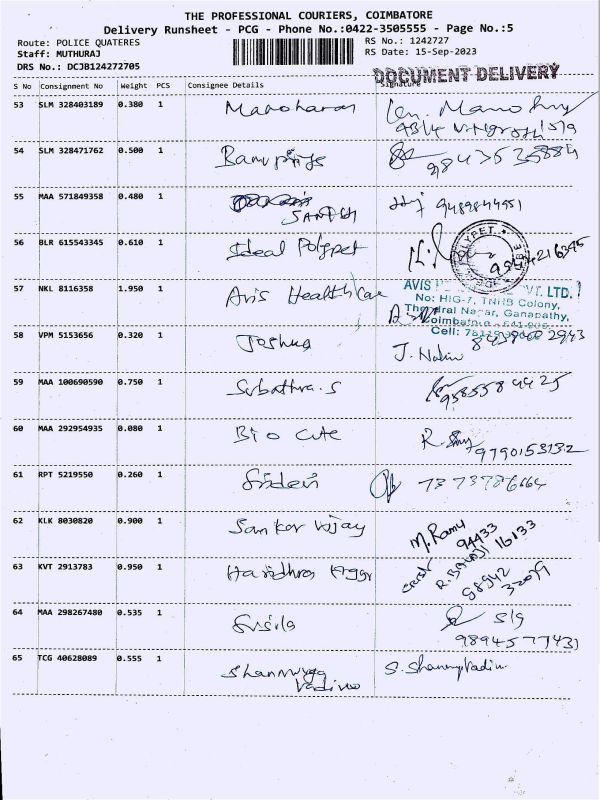 THE PROFESSIONAL COURIERS, COIMBATORE
Delivery Runsheet - PCG - Phone No.:0422-3505555 - Page No.:5
Route: POLICE QUATERES RS No.: 1242727
Staff: MUTHURAJ RS Date: 15-Sep-2023
DRS No.: DCJB124272705
DOCUMENT DELIVERY
S No Consignment No Weight PCS Consignee Details Signature
53 SLM 328403189 0.380 1 Manoharan
54 SLM 328471762 0.500 1
55 MAA 571849358 0.480 1 9489844951
SANTH
56 BLR 615543345 0.610 1 Ideal Polypet
57 NKL 8116358 1.950 1 Avis Health Care AVIS VT. LTD.
No: HIG-7, TNHB Colony,
Nagar, Ganapathy,
Coimbatore - 641 006.
Cell:
58 VPM 5153656 0.320 1 Joshua J. Nalin
59 MAA 100690590 0.750 1 Subathra.S 9585584425
60 MAA 292954935 0.080 1 Bio Cute 9790153132
61 RPT 5219550 0.260 1 Sridevi 7373786664
62 KLK 8030820 0.900 1 Sankar Vijay M. Ramu
94433 16133
63 KVT 2913783 0.950 1 Haridhra R. BALAJI
98942
32079
64 MAA 298267480 0.535 1 Susila S/g
9894577431
65 TCG 40628089 0.555 1 Shanmuga S. Shanmugavadivu
Vadivu